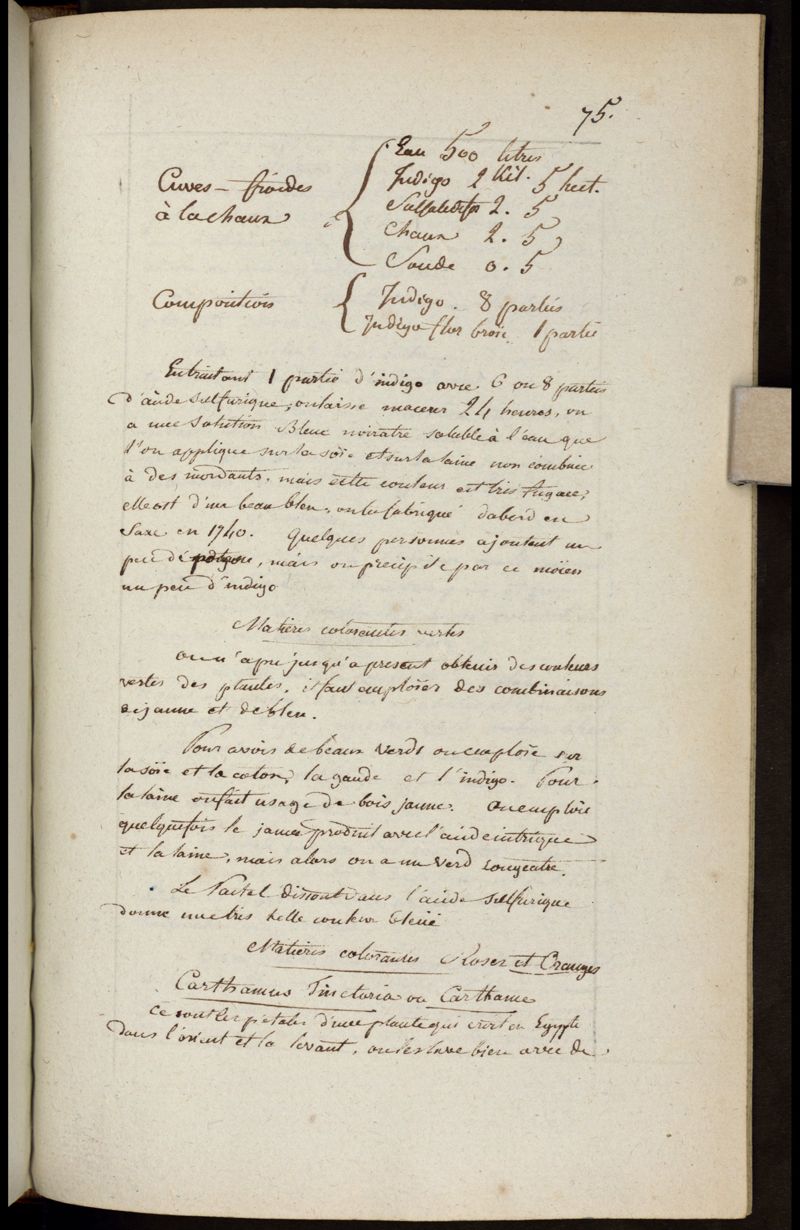 75.
Cuves - froides
à la chaux
Eau 500 litres
Indigo 2 kil. 5 hect.
Sulfate de fer 2. 5
Chaux 2. 5
Soude 0. 5
Compositions
Indigo. 8 parties
Indigo flor broié 1 partie
En traitant 1 partie d'indigo avec 6 ou 8 parties
d'acide sulfurique, on laisse macerer 24 heures, on
a une solution Bleue noiratre soluble à l'eau que
l'on applique sur la soïe et sur la laine non combinée
à des mordants, mais cette couleur est très fugace;
elle est d'un beau bleu, on la fabriqué dabord en
Saxe en 1740. Quelques personnes ajoutent un
peu de, mais on precipite par ce moïen
un peu d'indigo
Matières colorantes vertes
on n'a pu jusqu'a present obtenir des couleurs
vertes des plantes, il faut emploïer des combinaisons
de jaune et de bleu.
Pour avoir de beaux verds on emploïe sur
la soïe et le coton, la gaude et l'indigo. Pour
la laine on fait usage de bois jaune. On emploie
quelquefois le jaune produit avec l'acide nitrique
et la laine, mais alors on a un verd rougeatre.
Le Pastel dissout dans l'acide sulfurique
donne une très belle couleur bleüe
Matieres colorantes Roses et Oranges
Carthamus Tinctoria ou Carthame
Ce sont les pétales d'une plante qui croit en Egypte
dans l'orient et le levant, on les lave bien avec de